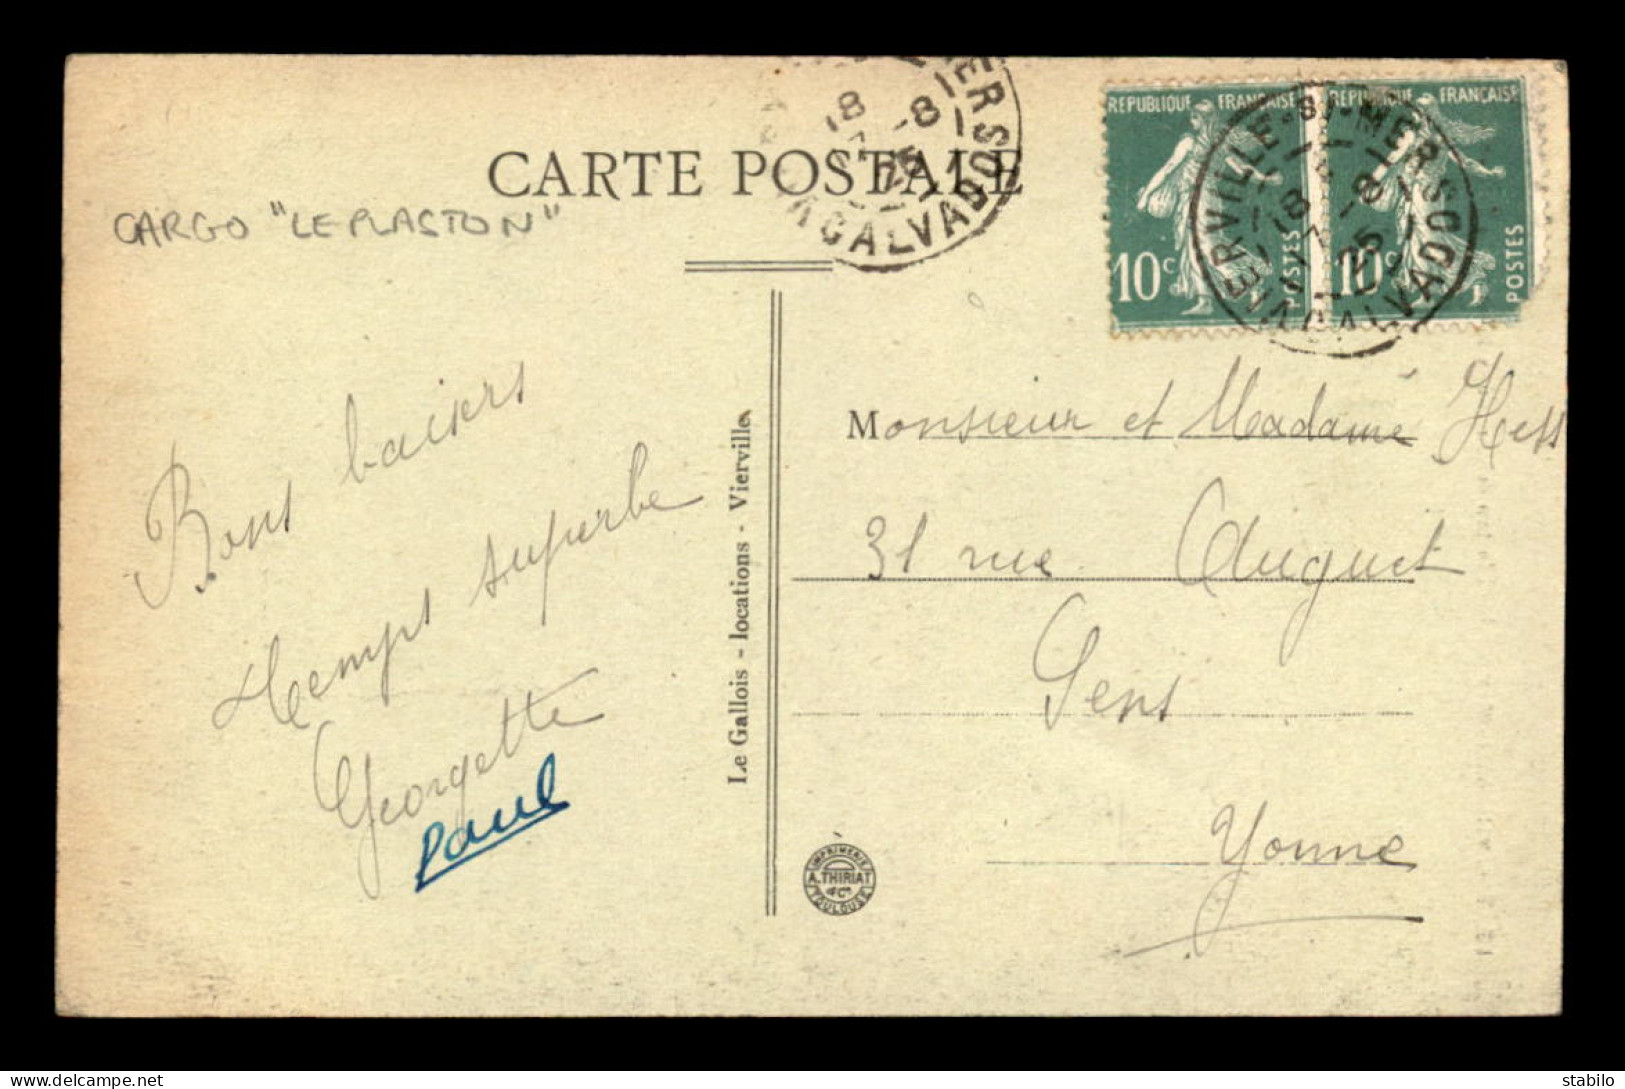 CARTE POSTALE
CARGO "LE PLASTON"
RÉPUBLIQUE FRANÇAISE
10c POSTES
RÉPUBLIQUE FRANÇAISE
10c POSTES
VIERVILLE-S/-MER
CALVADOS
18 -8
25
ERS
CALVADOS
18 -8
Bons baisers
temps superbe
Georgette
Paul
Le Gallois - locations - Vierville
Monsieur et Madame Hess
31 rue Auguet
Sens
Yonne
IMPRIMERIE
A. THIRIAT
& Cie
TOULOUSE
stabilo
www.delcampe.net